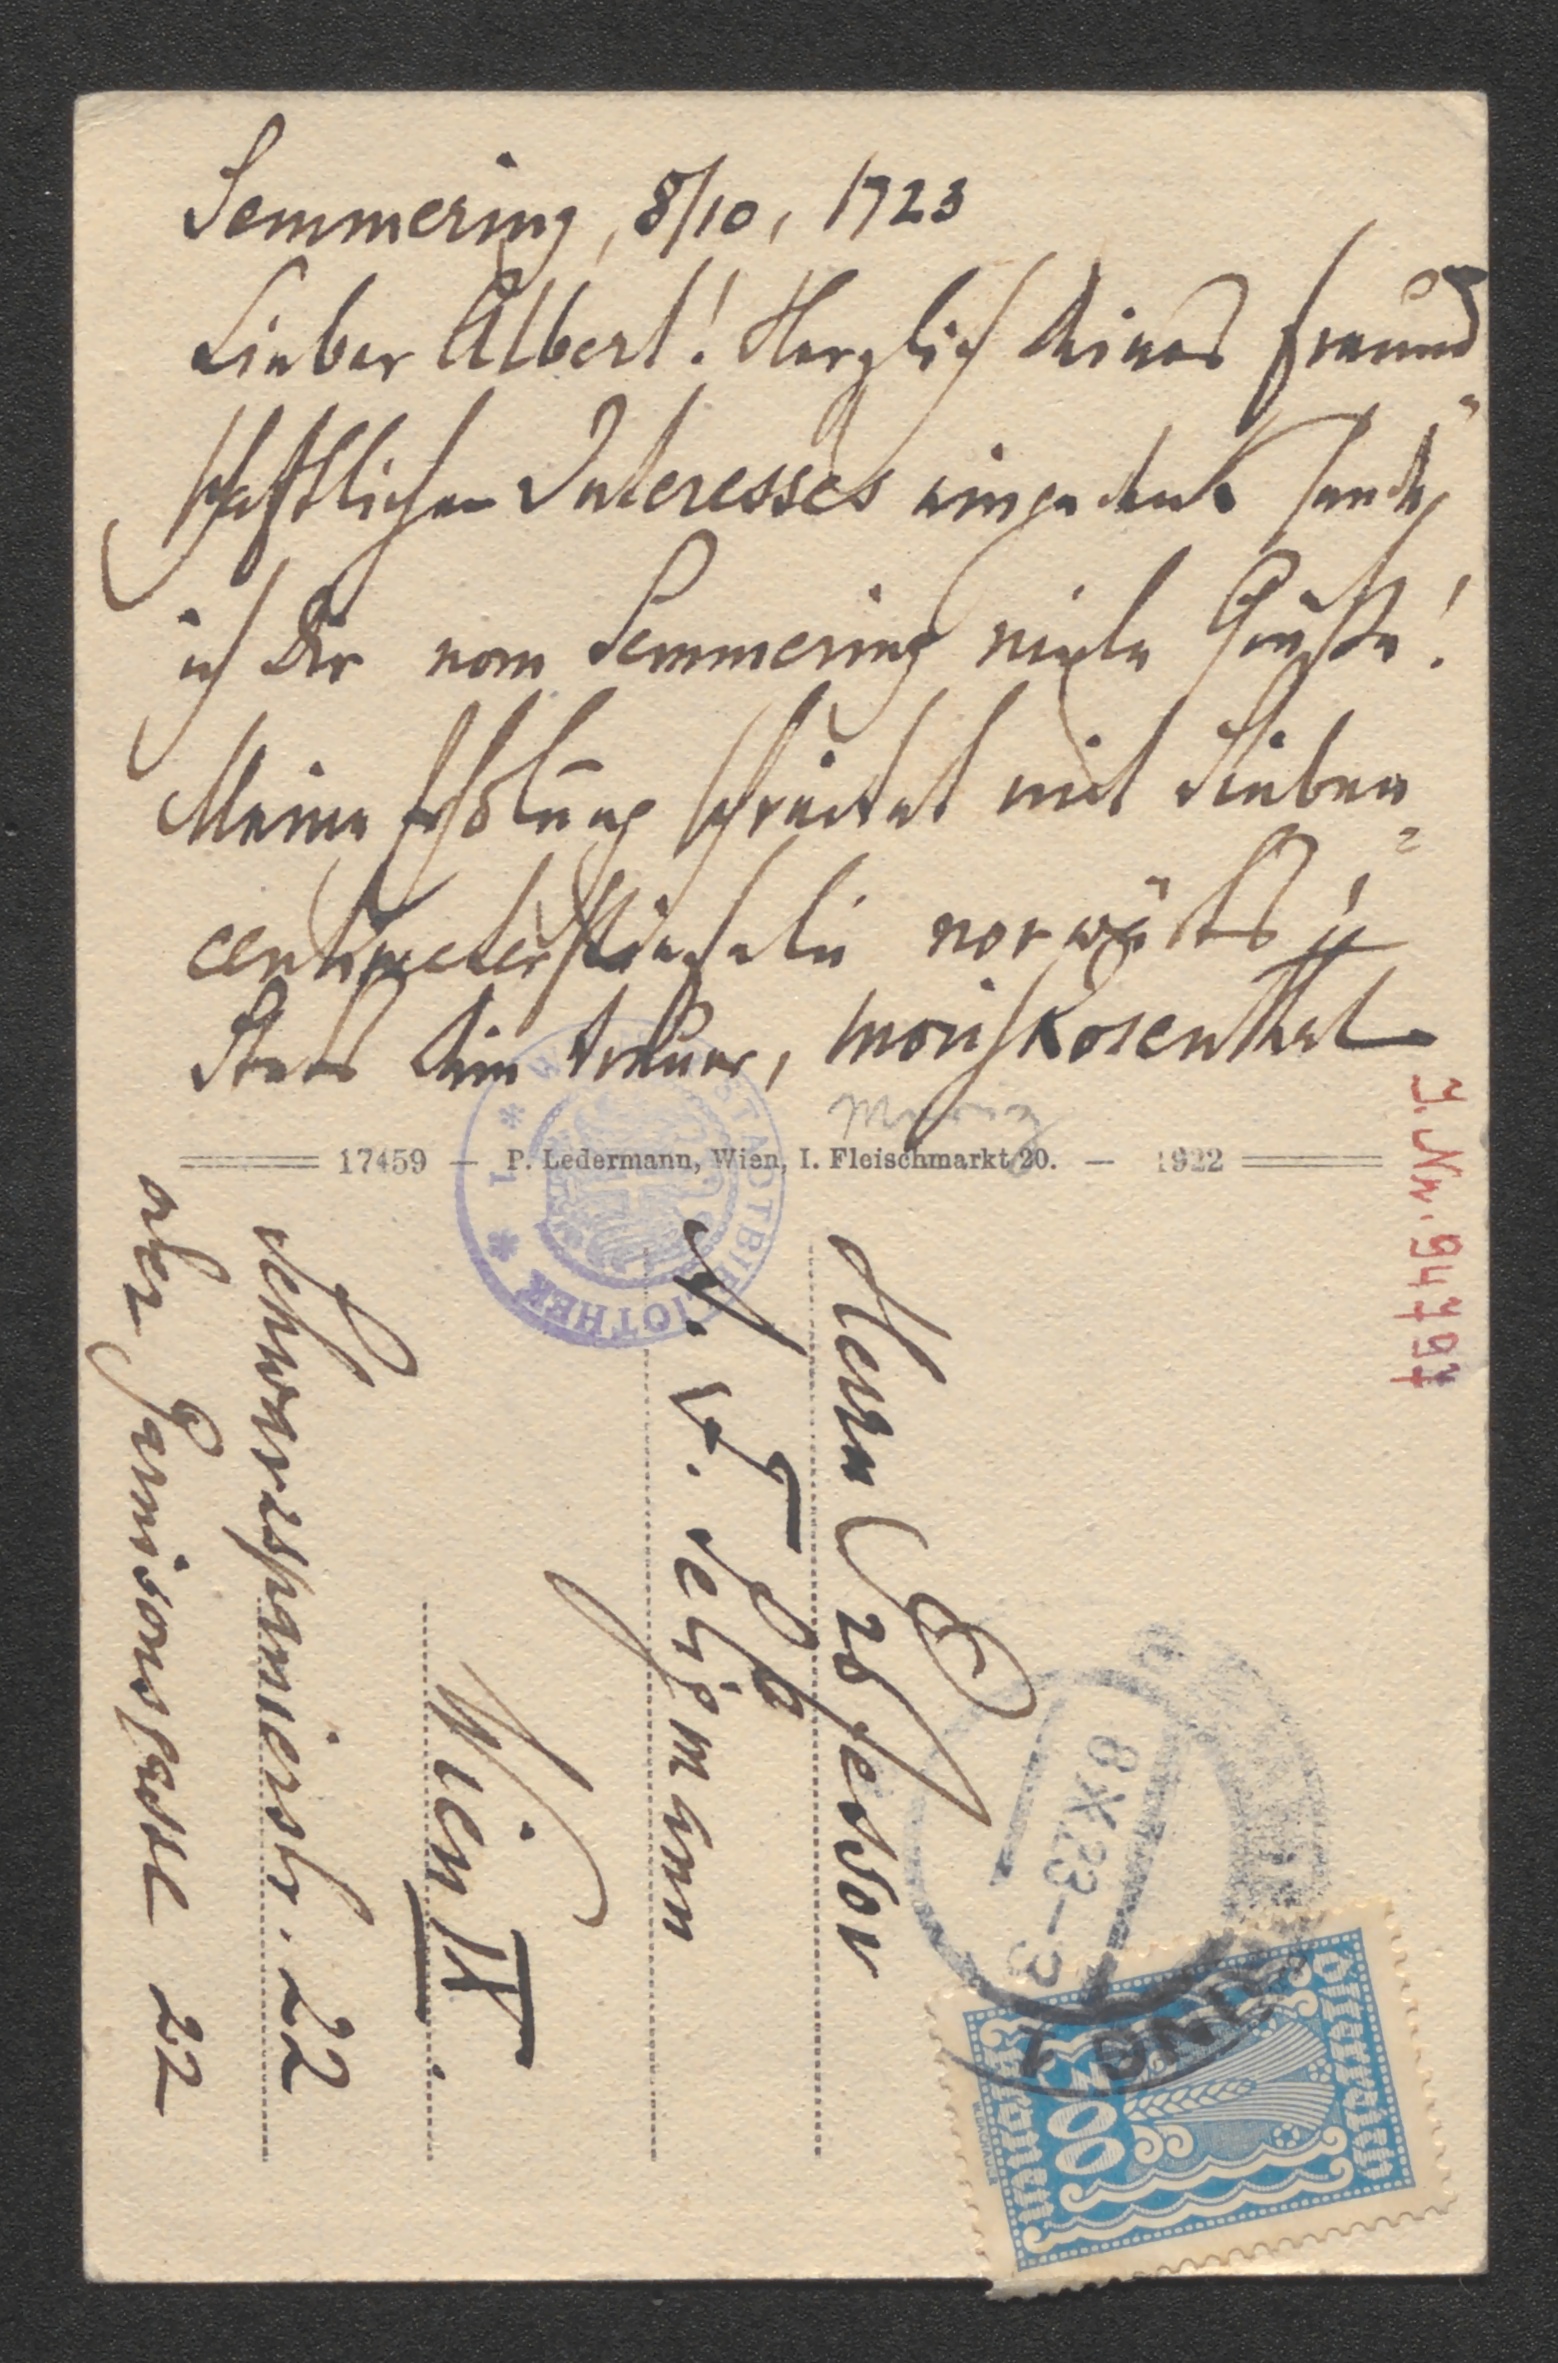 Semmering, 8/10, 1923
Lieber Albert! Herzlich Deines freund-
schaftlichen Interesses eingedenk sende
ich Dir vom Semmering viele Grüße!
Meine Erholung schreitet mit Sieben-
centimeterstiefeln vorwärts!!
Stets Dein treuer, Moriz Rosenthal
Moriz
17459 — P. Ledermann, Wien, I. Fleischmarkt 20. — 1922
J. Nr. 94797
STADTBIBLIOTHEK * 1 *
Herrn Professor
A. F. Seligmann
Wien IX.
Schwarzspanierstr. 22
oder Garnisonsgasse 22
8 X 23 - 3
Österreich
300
Kronen